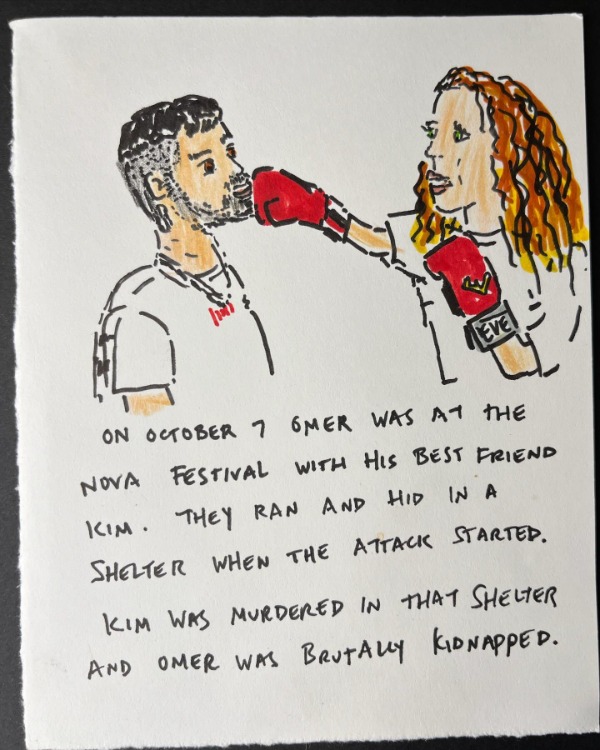 EVE
ON OCTOBER 7 OMER WAS AT THE
NOVA FESTIVAL WITH HIS BEST FRIEND
KIM. THEY RAN AND HID IN A
SHELTER WHEN THE ATTACK STARTED.
KIM WAS MURDERED IN THAT SHELTER
AND OMER WAS BRUTALLY KIDNAPPED.